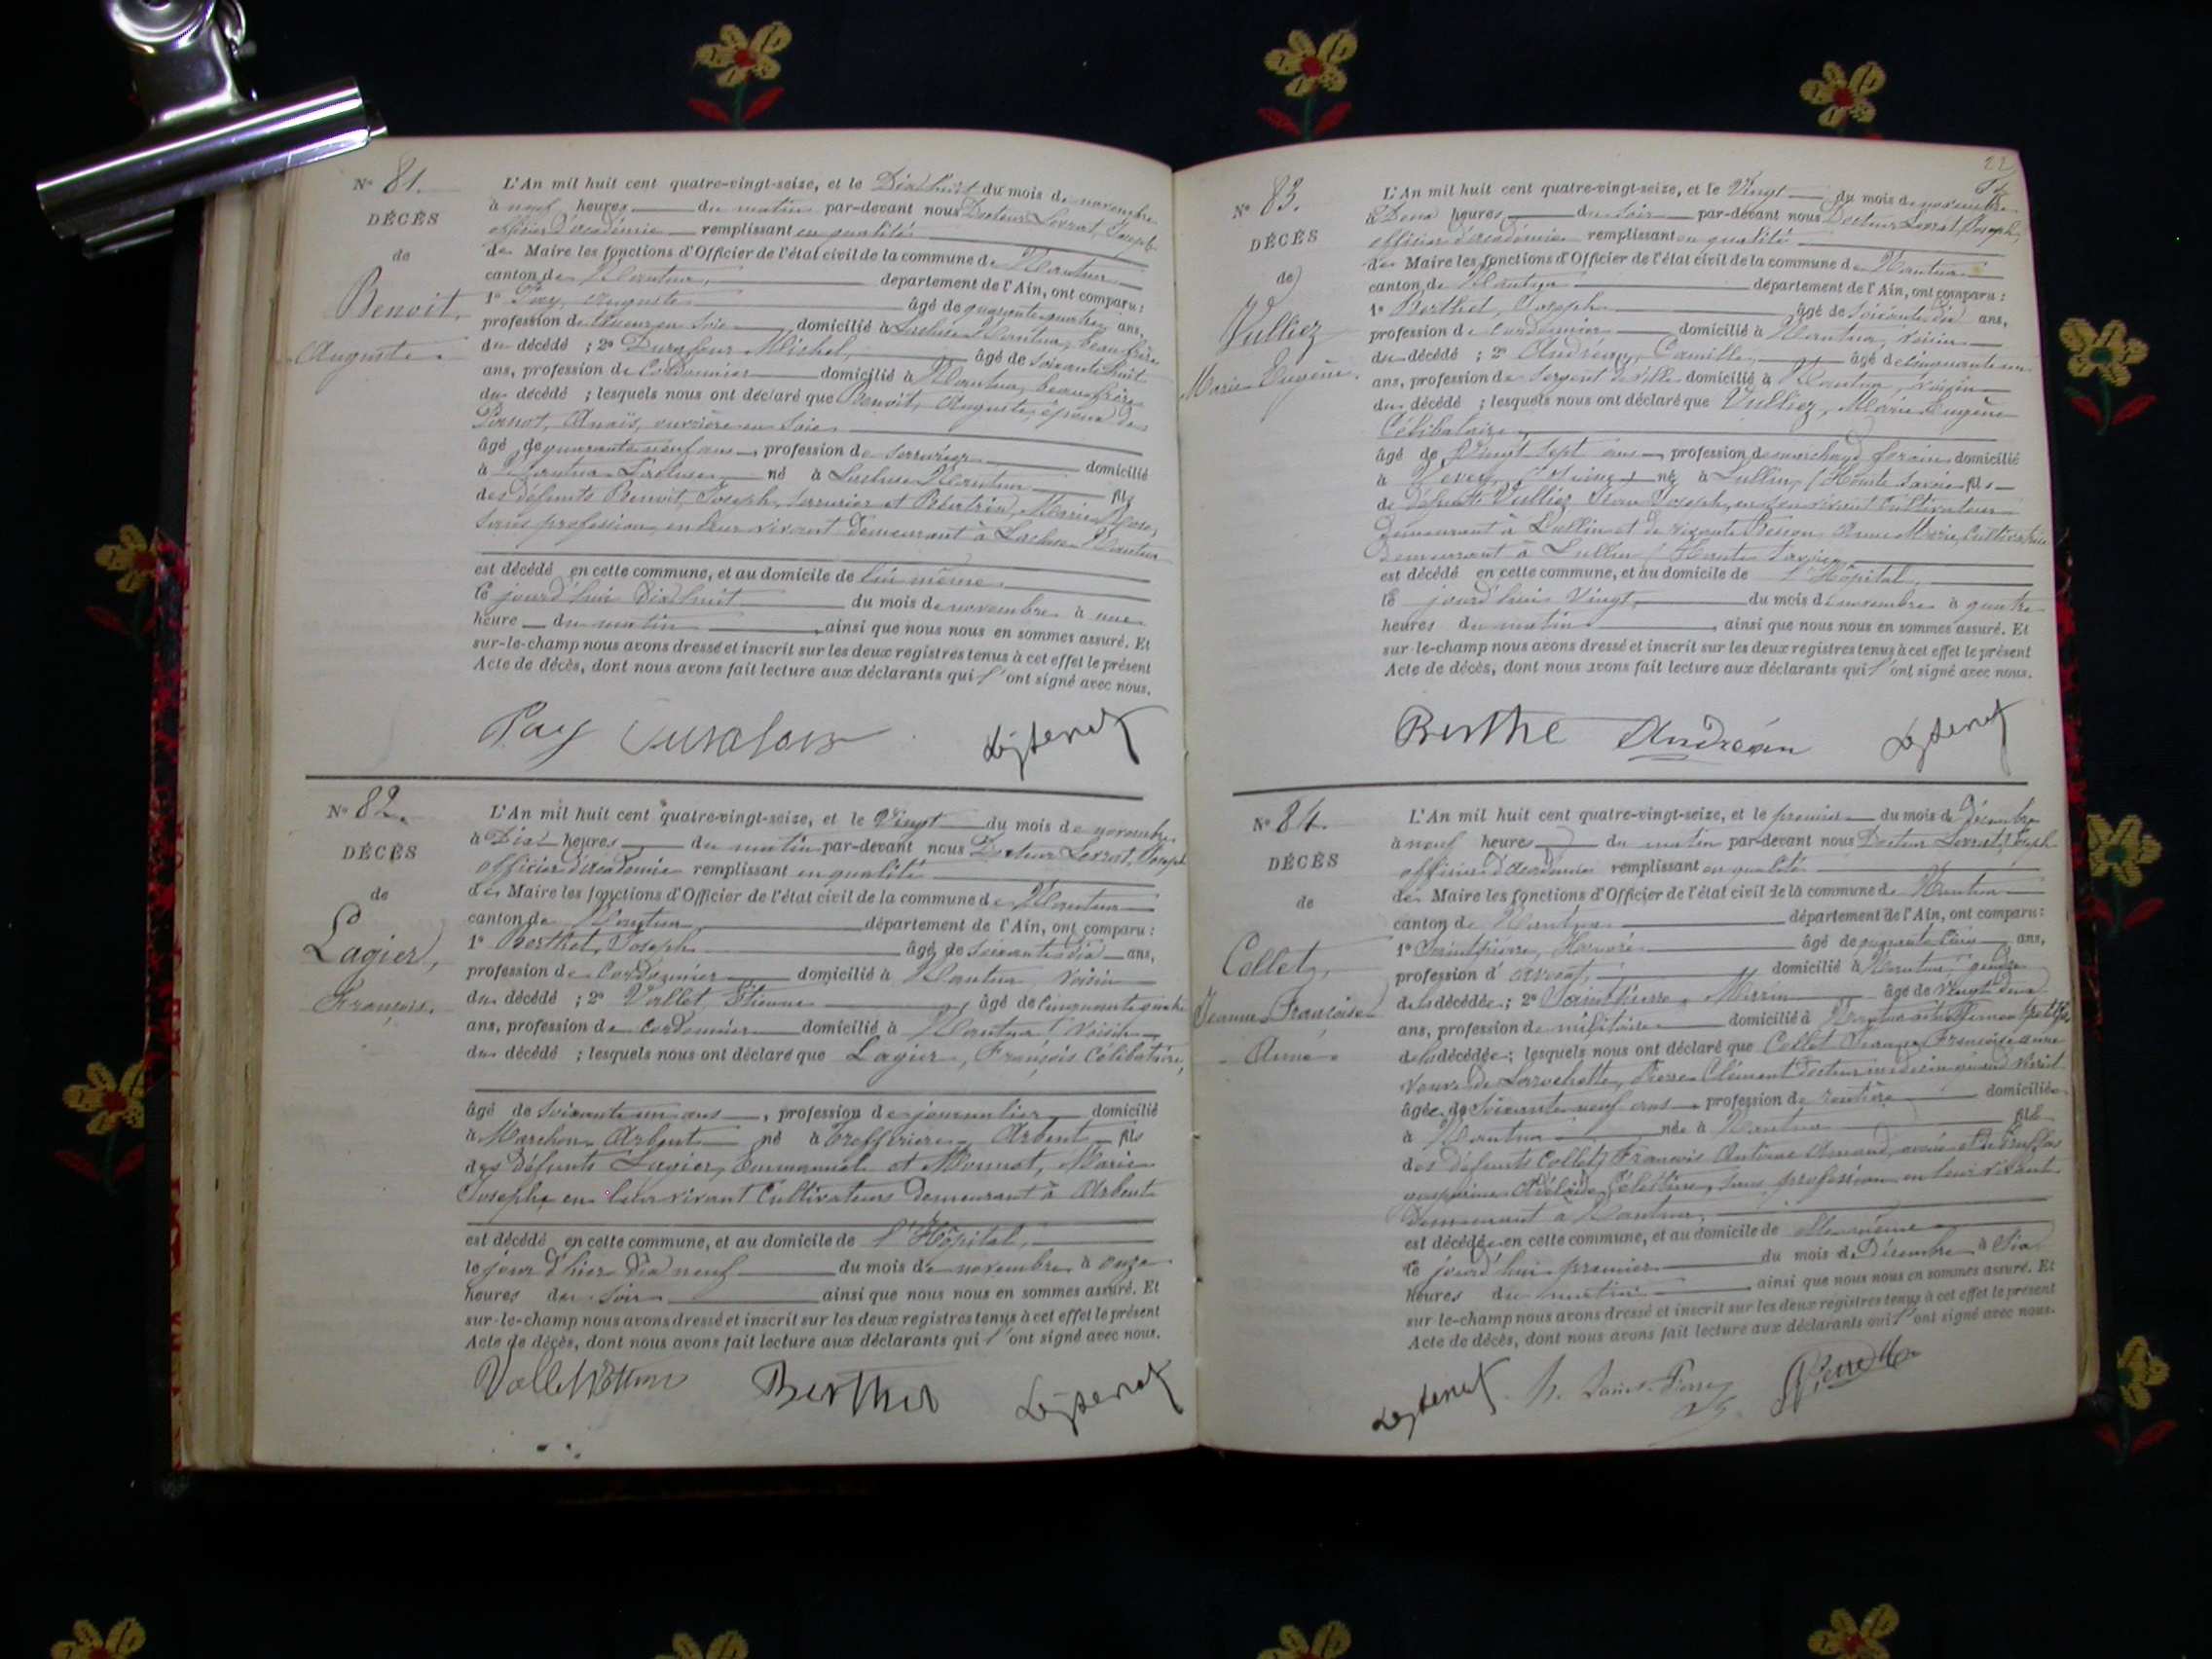 N° 81.
DÉCÈS
de
Benoit,
Auguste.
L'An mil huit cent quatre-vingt-seize, et le Dix huit du mois de novembre
à neuf heures du matin par-devant nous Docteur Levrat, Joseph
officier d'académie remplissant en qualité
de Maire les fonctions d'Officier de l'état civil de la commune de Nantua
canton de Nantua, département de l'Ain, ont comparu :
1° Pay, Auguste âgé de quarante quatre ans,
profession de tisseur en soie domicilié à Lacluse Nantua, beau frère
du décédé ; 2° Durafour Michel, âgé de soixante huit
ans, profession de Cordonnier domicilié à Nantua, beau frère
du décédé ; lesquels nous ont déclaré que Benoit, Auguste, époux de
Anaïs, ouvrière en soie
âgé de quarante neuf ans, profession de serrurier domicilié
à Nantua Lacluse né à Lacluse Nantua fils
des défunts Benoit, Joseph, serrurier et Marie Rose,
sans profession, en leur vivant demeurant à Lacluse Nantua
est décédé en cette commune, et au domicile de lui même
le jourd'hui Dix huit du mois de novembre à une
heure du matin, ainsi que nous nous en sommes assuré. Et
sur-le-champ nous avons dressé et inscrit sur les deux registres tenus à cet effet le présent
Acte de décès, dont nous avons fait lecture aux déclarants qui l'ont signé avec nous.
Pay Durafour
N° 82.
DÉCÈS
de
Lagier,
François.
L'An mil huit cent quatre-vingt-seize, et le Vingt du mois de novembre
à Dix heures du matin par-devant nous Docteur Levrat, Joseph
officier d'académie remplissant en qualité
de Maire les fonctions d'Officier de l'état civil de la commune de Nantua
canton de Nantua, département de l'Ain, ont comparu :
1° Berthet, Joseph âgé de soixante dix ans,
profession de Cordonnier domicilié à Nantua voisin
du décédé ; 2° Vallet, Etienne, âgé de Cinquante quatre
ans, profession de Cordonnier domicilié à Nantua, voisin
du décédé ; lesquels nous ont déclaré que Lagier, François Célibataire,
âgé de soixante un ans, profession de journalier domicilié
à Marchon Arbent né à Arbent fils
des défunts Lagier, Emmanuel et Marie
Josephe en leur vivant Cultivateurs demeurant à Arbent
est décédé en cette commune, et au domicile de l'Hôpital,
le jour d'hier Dix neuf du mois de novembre à onze
heures du soir ainsi que nous nous en sommes assuré. Et
sur-le-champ nous avons dressé et inscrit sur les deux registres tenus à cet effet le présent
Acte de décès, dont nous avons fait lecture aux déclarants qui l'ont signé avec nous.
Berthet
22
N° 83.
DÉCÈS
de
Vulliez
Marie Eugène.
L'An mil huit cent quatre-vingt-seize, et le Vingt du mois de novembre
à Deux heures du soir par-devant nous Docteur Levrat, Joseph,
officier d'académie remplissant en qualité
de Maire les fonctions d'Officier de l'état civil de la commune de Nantua
canton de Nantua département de l'Ain, ont comparu :
1° Berthet, Joseph âgé de soixante dix ans,
profession de Cordonnier domicilié à Nantua, voisin
du décédé ; 2° Andréan, Camille, âgé de cinquante un
ans, profession de sergent de ville domicilié à Nantua, voisin
du décédé ; lesquels nous ont déclaré que Vulliez, Marie Eugène
Célibataire,
âgé de Vingt sept ans, profession de marchand forain domicilié
à Vevey, né à Lullin, (Haute Savoie) fils
de défunt Vulliez Jean Joseph, en son vivant Cultivateur
demeurant à Lullin et de vivante Anne Marie, Cultivatrice
demeurant à Lullin (Haute Savoie)
est décédé en cette commune, et au domicile de l'Hôpital,
le jourd'hui Vingt du mois de novembre à quatre
heures du matin, ainsi que nous nous en sommes assuré. Et
sur-le-champ nous avons dressé et inscrit sur les deux registres tenus à cet effet le présent
Acte de décès, dont nous avons fait lecture aux déclarants qui l'ont signé avec nous.
Berthe Andréan
N° 84.
DÉCÈS
de
Collet,
Jeanne Françoise
Aimé.
L'An mil huit cent quatre-vingt-seize, et le premier du mois de Décembre
à neuf heures du matin par-devant nous Docteur Levrat, Joseph
officier d'académie remplissant en qualité
de Maire les fonctions d'Officier de l'état civil de la commune de Nantua
canton de Nantua département de l'Ain, ont comparu :
1° Saintpierre, Honoré âgé de quarante cinq ans,
profession d'avocat, domicilié à Nantua, gendre
de la décédée ; 2° Saintpierre, âgé de vingt deux
ans, profession de militaire domicilié à petit fils
de la décédée ; lesquels nous ont déclaré que Collet Jeanne Françoise
Veuve de Larochette, Pierre Clément docteur médecin quand vivait
âgée de soixante neuf ans, profession de rentière domiciliée
à Nantua née à Nantua fille
des défunts Collet, François Antoine Amand, avoué et
Adélaïde sans profession en leur vivant
demeurant à Nantua,
est décédée en cette commune, et au domicile de elle même
le jourd'hui premier du mois de Décembre à Six
heures du matin ainsi que nous nous en sommes assuré. Et
sur-le-champ nous avons dressé et inscrit sur les deux registres tenus à cet effet le présent
Acte de décès, dont nous avons fait lecture aux déclarants qui l'ont signé avec nous.
h. Saint-Pierre